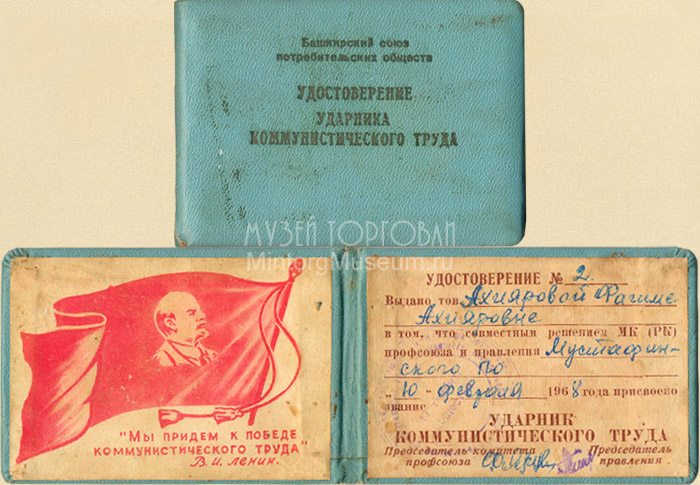 Башкирский союз
потребительских обществ
УДОСТОВЕРЕНИЕ
УДАРНИКА
КОММУНИСТИЧЕСКОГО ТРУДА
МУЗЕЙ ТОРГОВЛИ
MintorgMuseum.ru
"Мы придем к победе
коммунистического труда"
В. И. Ленин.
УДОСТОВЕРЕНИЕ № 2.
Выдано тов. Ахияровой Фагиме
Ахияровне
в том, что совместным решением МК (РК)
профсоюза и правления Мустафин-
ского по
„10 - февраля 1968 года присвоено
звание
УДАРНИК
КОММУНИСТИЧЕСКОГО ТРУДА
Председатель комитета Председатель
профсоюза правления